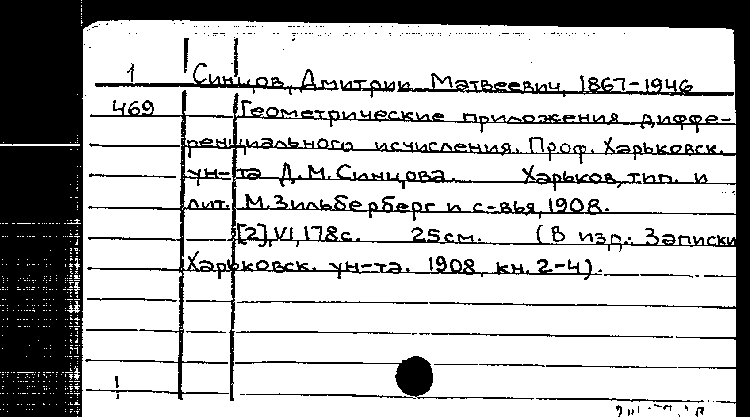 1 Синцов, Дмитрий Матвеевич, 1867-1946
469 Геометрические приложения диффе-
ренциального исчисления. Проф. Харьковск.
ун-та Д.М.Синцова. Харьков, тип. и
лит. М.Зильберберг и с-вья, 1908.
[2], VI, 178с. 25см. (В изд.: Записки
Харьковск. ун-та. 1908, кн. 2-4).